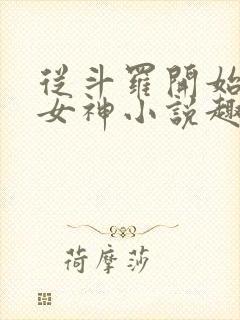 從斗羅開始
女神小説趣
荷摩莎